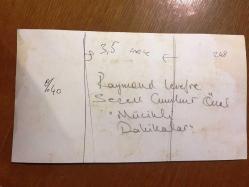 3,5
248
Raymond Levefre
Sezen Cumhur Önal
"Müzikli
Dakikalar"